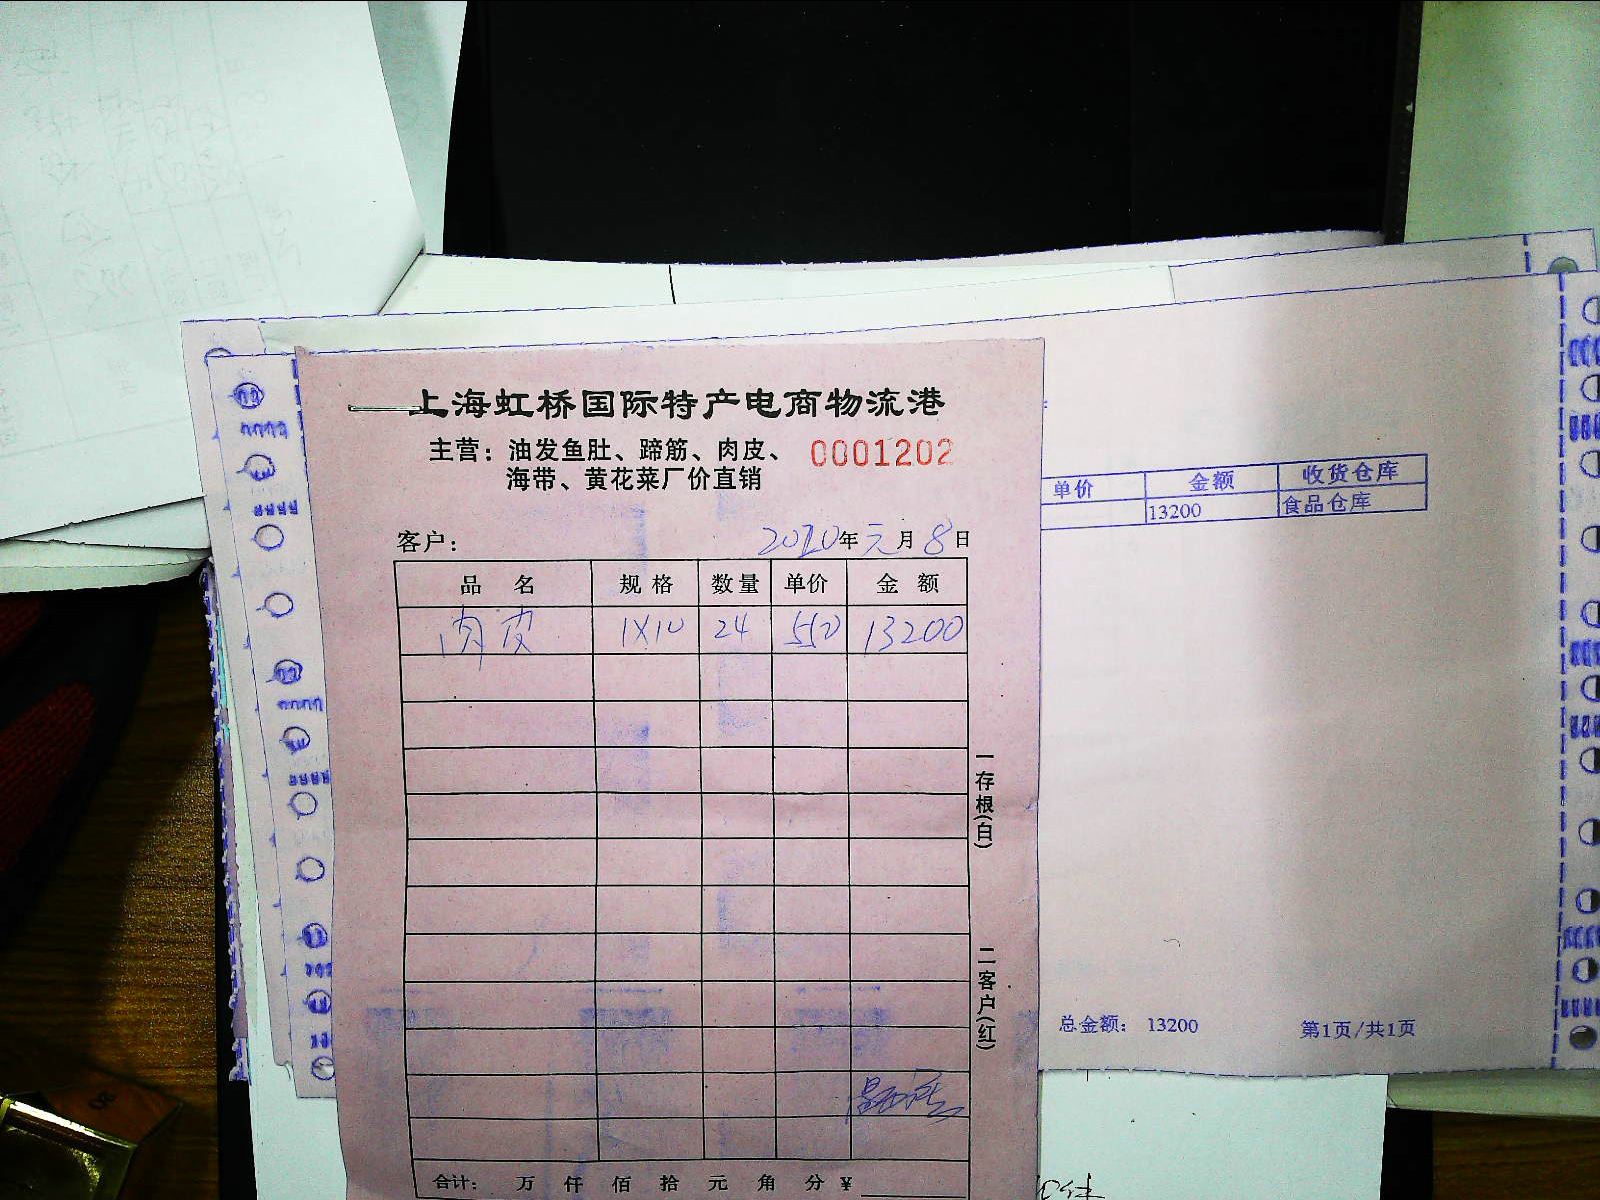 上海虹桥国际特产电商物流港
主营：油发鱼肚、蹄筋、肉皮、
海带、黄花菜厂价直销
0001202
客户：
2020年元月8日
品名 规格 数量 单价 金额
肉皮 1X10 24 550 13200
合计： 万 仟 佰 拾 元 角 分 ¥
一存根(白)
二客户(红)
单价 金额 收货仓库
13200 食品仓库
总金额： 13200 第1页/共1页